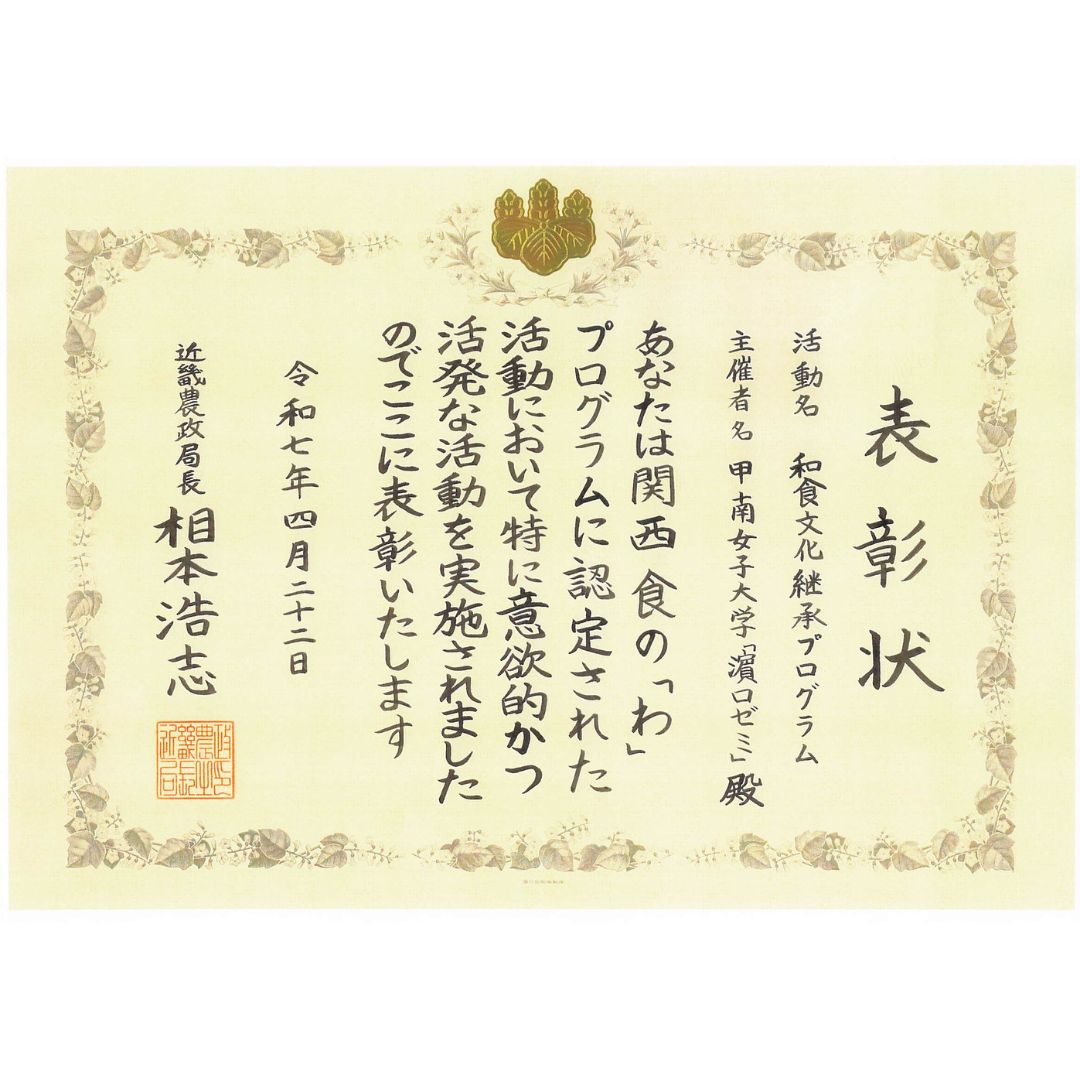 表彰状
活動名 和食文化継承プログラム
主催者名 甲南女子大学「濵口ゼミ」殿
あなたは関西食の「わ」
プログラムに認定された
活動において特に意欲的かつ
活発な活動を実施されました
のでここに表彰いたします
令和七年四月二十二日
近畿農政局長 相本浩志